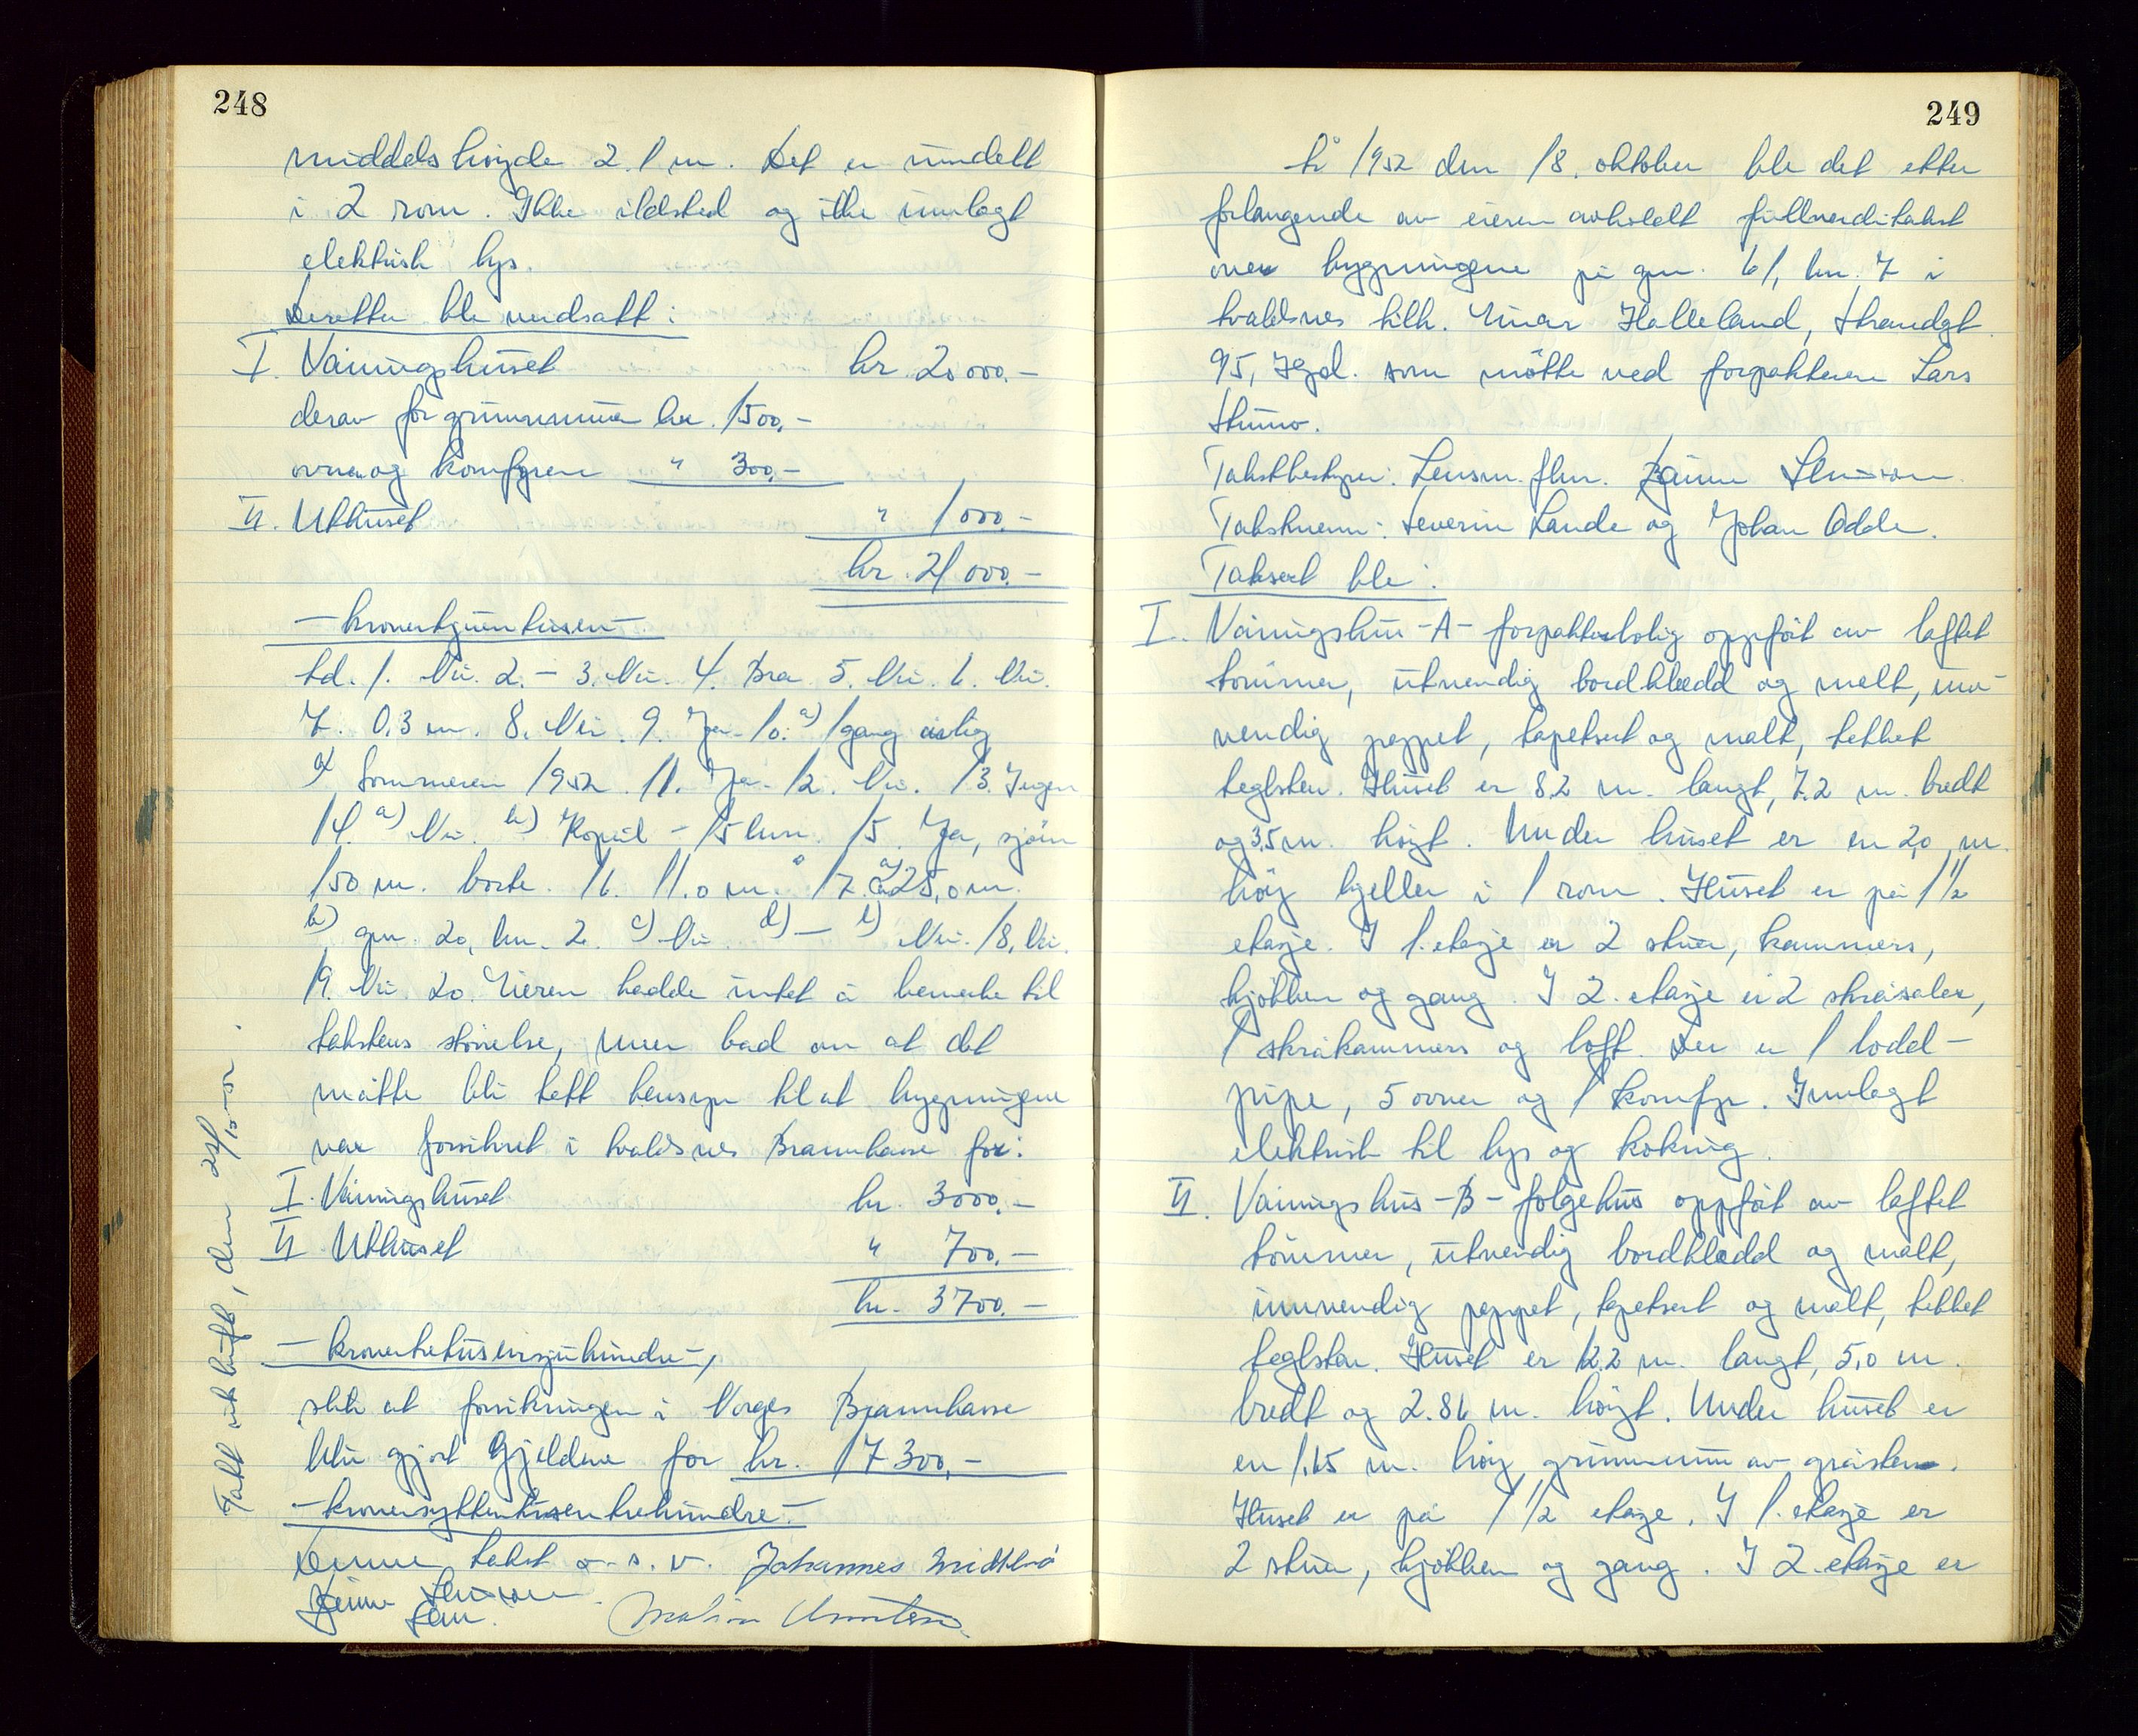 248
middels høyde 2.1 m. Det er inndelt
i 2 rom. Ikke ildsted og ikke innlagt
elektrisk lys.
Deretter ble verdsatt:
I. Våningshuset kr. 20000.-
derav for grunnmuren kr. 1500,-
ovner og komfyren " 300,-
II. Uthuset " 1000.-
kr. 21000.-
- kronertjueentusen -.
Ad. 1. Nei. 2. - 3. Nei. 4. Bra 5. Nei. 6. Nei.
7. 0.3 m. 8. Nei. 9. Ja. 10. a) 1 gang årlig
Sommeren 1952. 11. Ja. 12. Nei. 13. Ingen
14. a) Nei. b) Kopervik - 15 km. 15. Ja, sjøen
150 m. borte. 16. 11.0 m. 17. a) 25,0 m.
b) gnr. 20, bnr. 2. c) Nei d) - e) Nei. 18. Nei.
19. Nei. 20. Eieren hadde intet å bemerke til
takstens størrelse, men bad om at det
måtte bli tatt hensyn til at bygningene
var forsikret i Avaldsnes Brannkasse for:
I. Våningshuset kr. 3000.-
II Uthuset " 700.-
kr. 3700.-
- kronertretusensjuhundre -,
slik at forsikringen i Norges Brannkasse
blir gjort gjeldene for kr. 17300,-
- kronersyttentusentrehundre -
Denne takst o. s. v. Johannes
Tatt utskrift, den
249
År 1952 den 18. oktober ble det etter
forlangende av eieren avholdt fullverditakst
over bygningene på gnr. 61, bnr. 7 i
Avaldsnes tilh. Einar Halleland, Strandgt.
95, Hgsd. som møtte ved forpakteren Lars
Takstbestyrer: Lensm. flm.
Takstmenn: Severin Lande og Johan Odde.
Taksert ble:
I. Våningshus - A - forpakterbolig oppført av laftet
tømmer, utvendig bordkledd og malt, inn-
vendig pappet, tapetsert og malt, tekket
teglsten. Huset er 8.2 m. langt, 7.2 m. bredt
og 3,5 m. høyt. Under huset er en 2,0 m.
høy kjeller i 1 rom. Huset er på 1 1/2
etasje. I 1. etasje er 2 stuer, kammers,
kjøkken og gang. I 2. etasje er 2 skråsaler,
1 skråkammers og loft. Der er 1 lodd-
pipe, 5 ovner og 1 komfyr. Innlagt
elektrisk til lys og koking.
II. Våningshus - B - følgehus oppført av laftet
tømmer, utvendig bordkledd og malt,
innvendig pappet, tapetsert og malt, tekket
teglsten. Huset er 12,2 m. langt, 5,0 m.
bredt og 2.86 m. høyt. Under huset er
en 1.65 m. høy grunnmur av gråsten.
Huset er på 1 1/2 etasje. I 1. etasje er
2 stuer, kjøkken og gang. I 2. etasje er